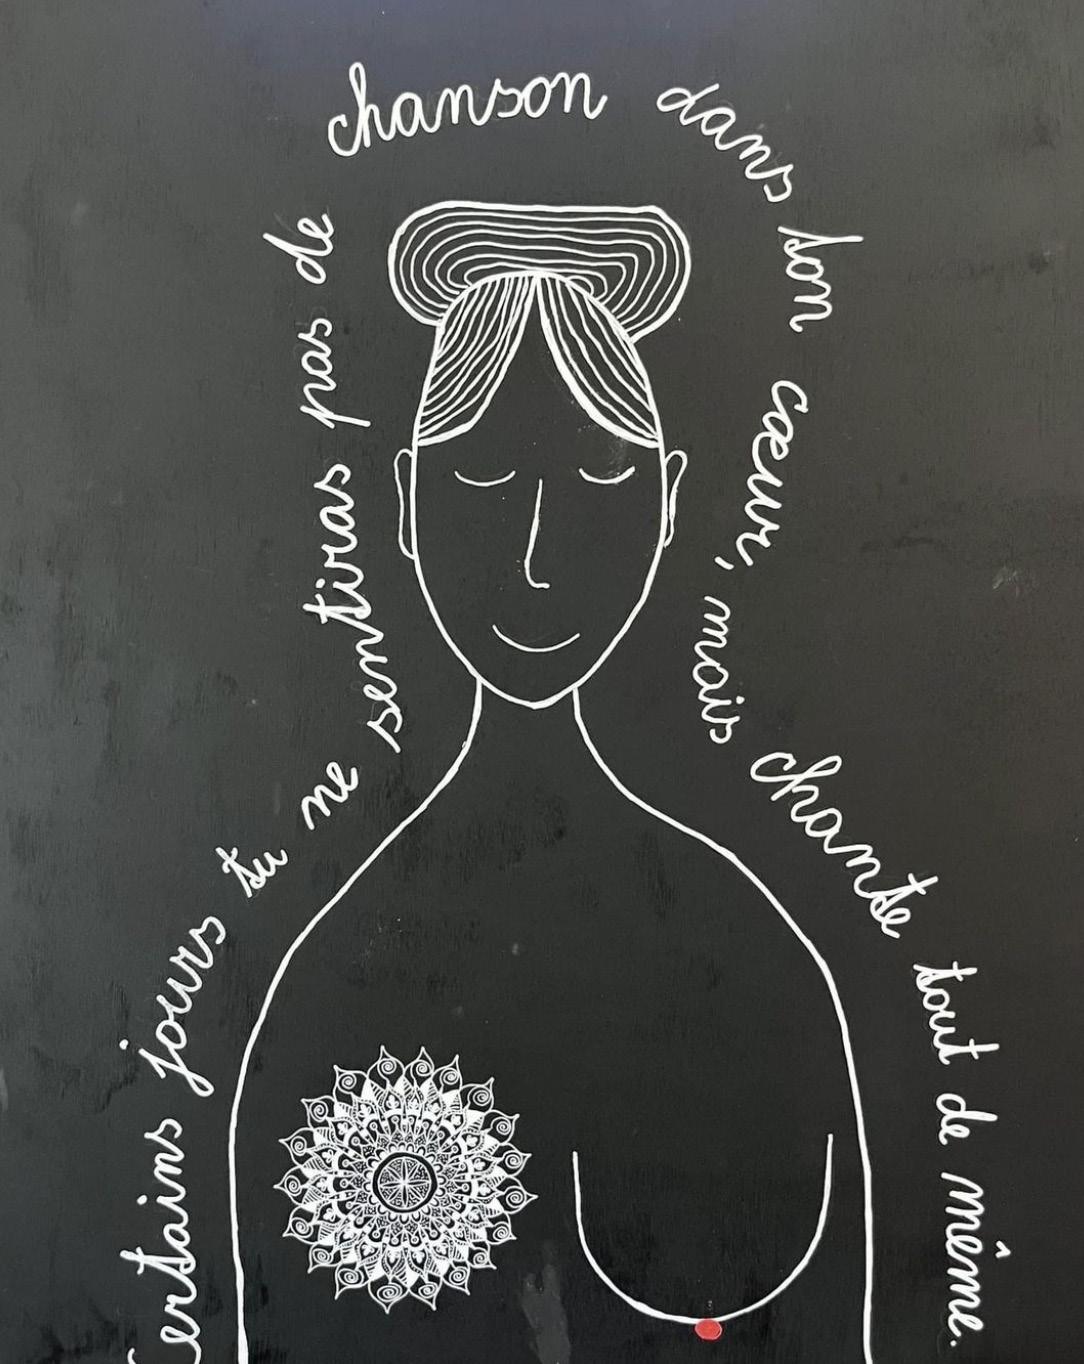 Certains jours tu ne sentiras pas de chanson dans ton cœur, mais chante tout de même.